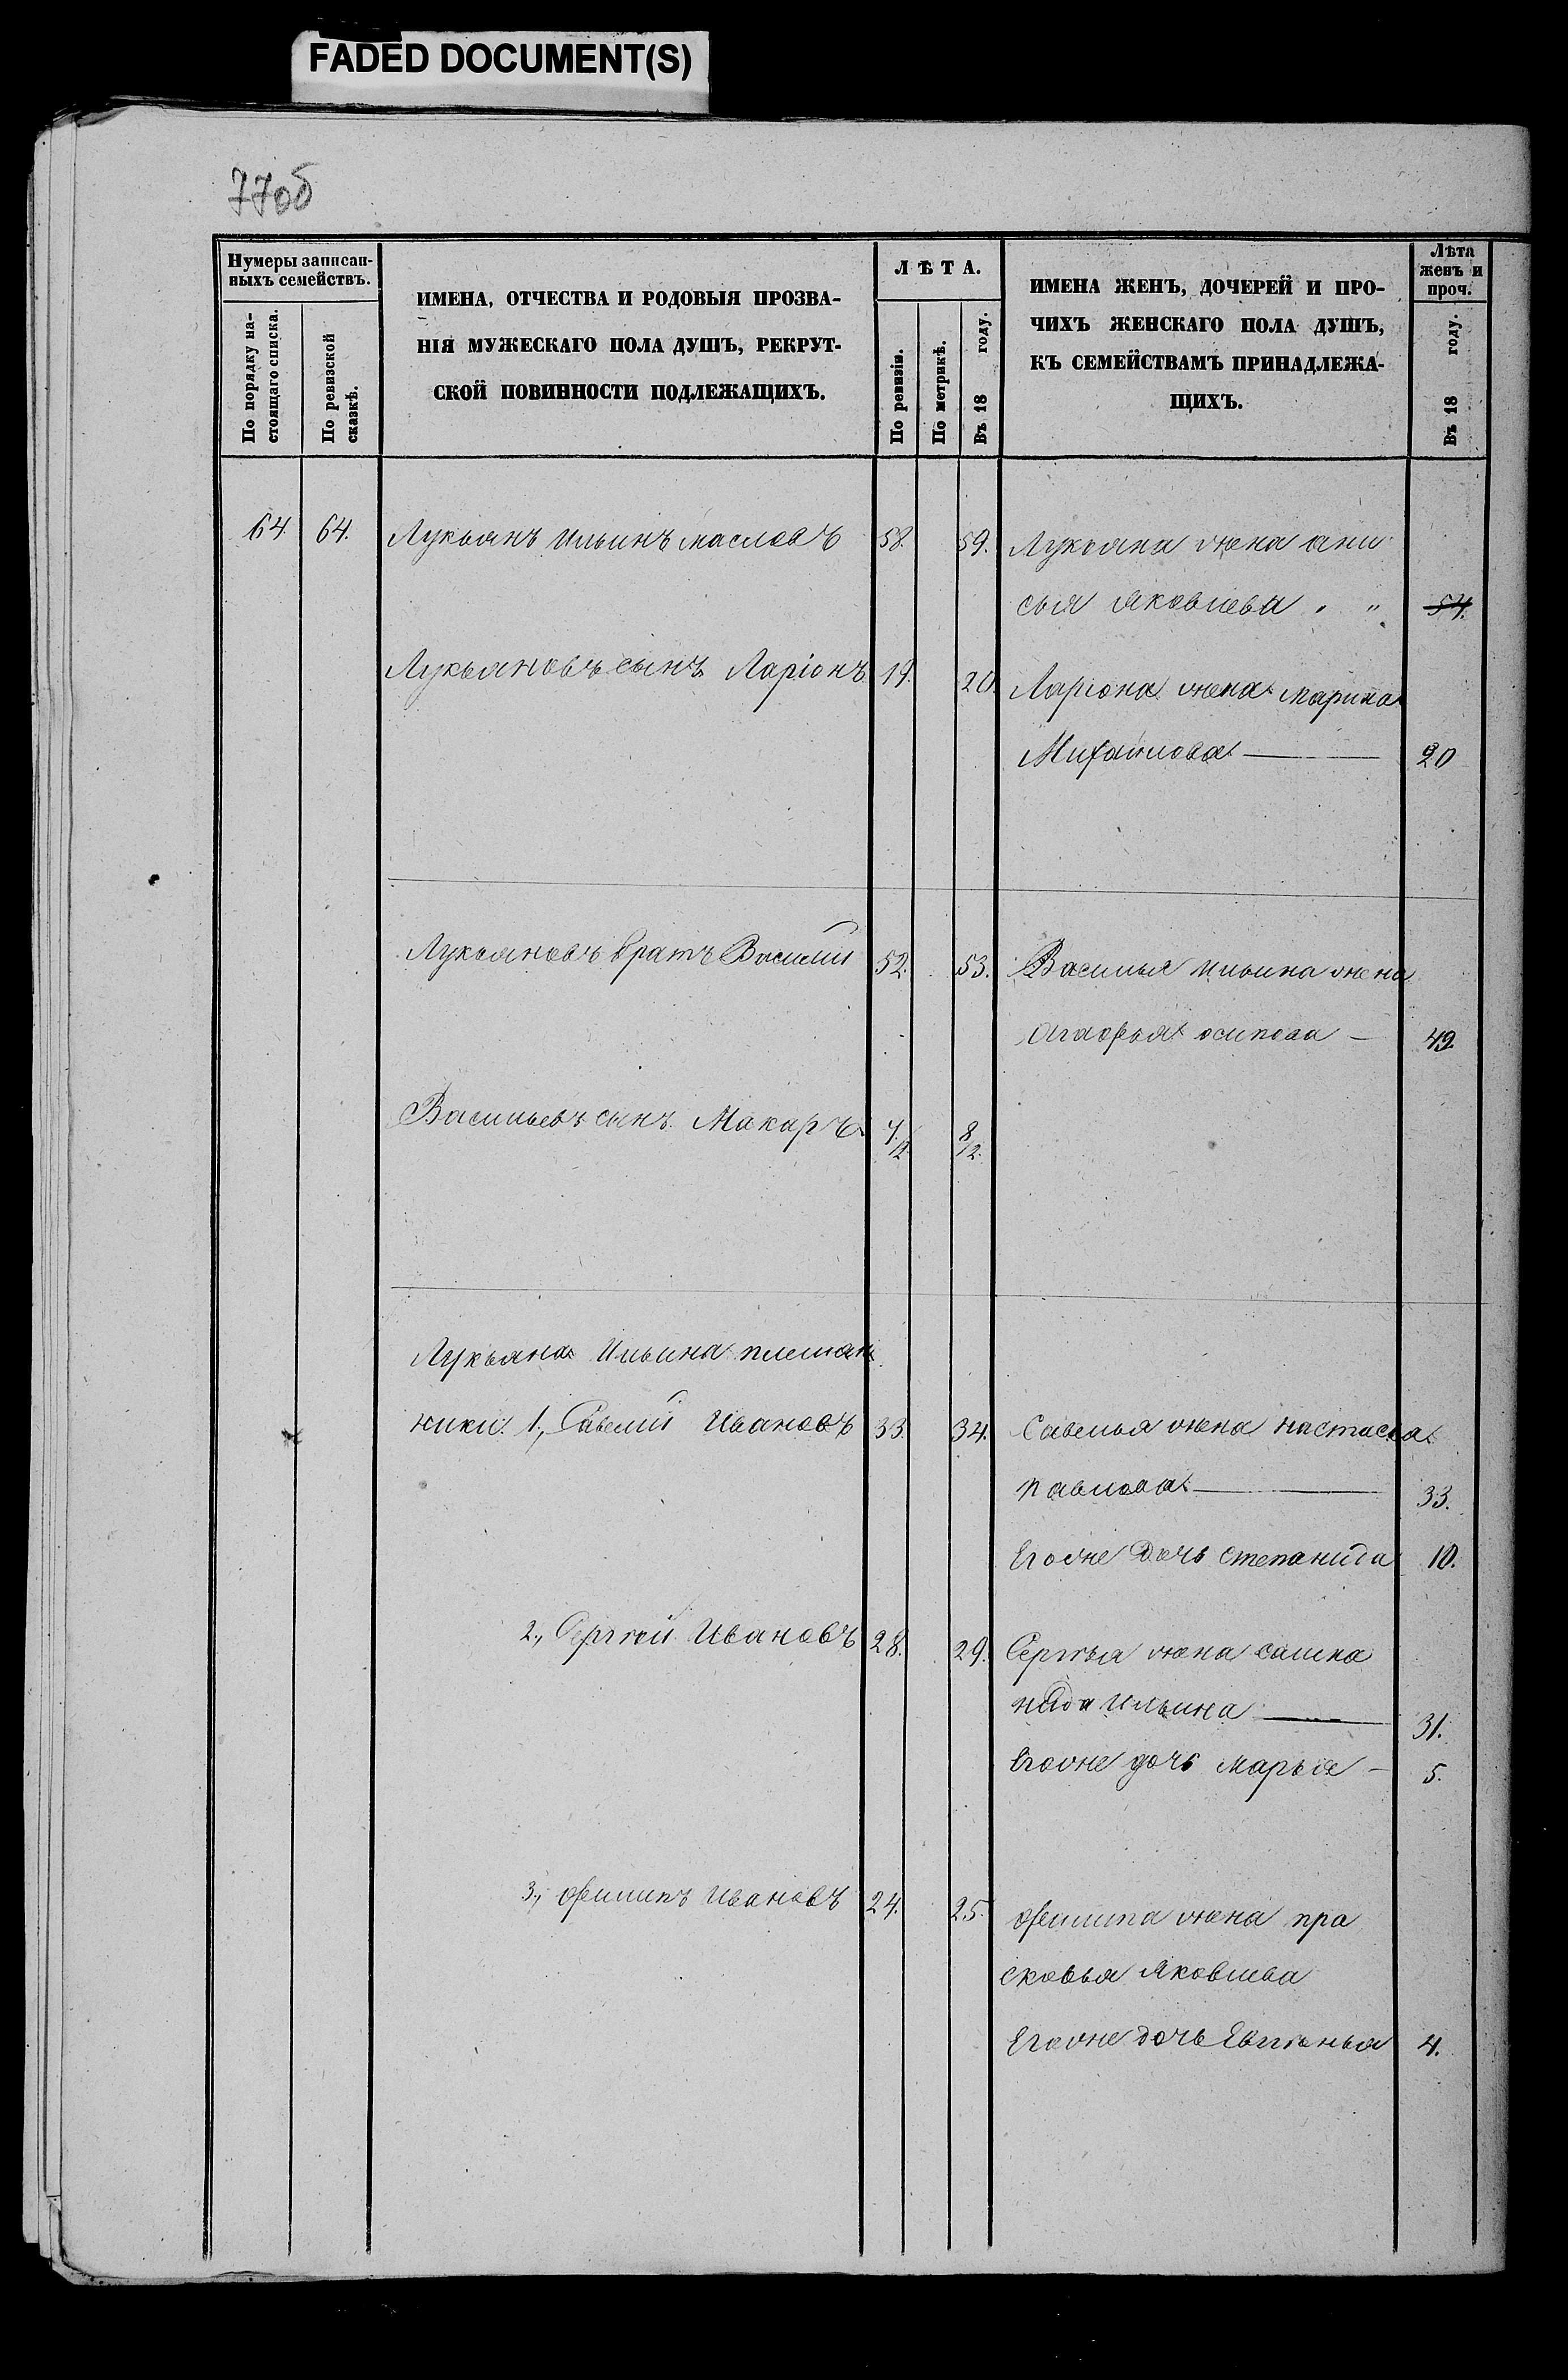 FADED DOCUMENT(S)
77об
Нумеры записан-
ныхъ семействъ.
По порядку на-
стоящаго списка.
По ревизской
сказкѣ.
ИМЕНА, ОТЧЕСТВА И РОДОВЫЯ ПРОЗВА-
НІЯ МУЖЕСКАГО ПОЛА ДУШЪ, РЕКРУТ-
СКОЙ ПОВИННОСТИ ПОДЛЕЖАЩИХЪ.
ЛѢТА.
По ревизіи.
По метрикѣ.
Въ 18 году.
ИМЕНА ЖЕНЪ, ДОЧЕРЕЙ И ПРО-
ЧИХЪ ЖЕНСКАГО ПОЛА ДУШЪ,
КЪ СЕМЕЙСТВАМЪ ПРИНАДЛЕЖА-
ЩИХЪ.
Лѣта
женъ и
проч.
Въ 18 году.
64. 64. Лукьянъ Ильинъ масловъ 58. 59. Лукьяна жена ани
сья яковлева " " 54.
Лукьяновъ сынъ Ларіонъ 19. 20. Ларіона жена марина
Михайлова — 20
Лукьяновъ братъ Василий 52. 53. Василья Ильина жена
Агафья осипова — 49.
Васильевъ сынъ Макаръ 7/12. 8/12.
Лукьяна Ильина племян
ники. 1., Савелий Ивановъ 33. 34. Савелья жена настасья
павлова — 33.
Егоже Дочь степанида 10.
2., Сергей Ивановъ 28. 29. Сергья жена
нида Ильина — 31.
Егоже дочь марья — 5.
3., филипъ Ивановъ 24. 25. филипа жена пра
сковья Яковлева
Егоже дочь Евгенья 4.